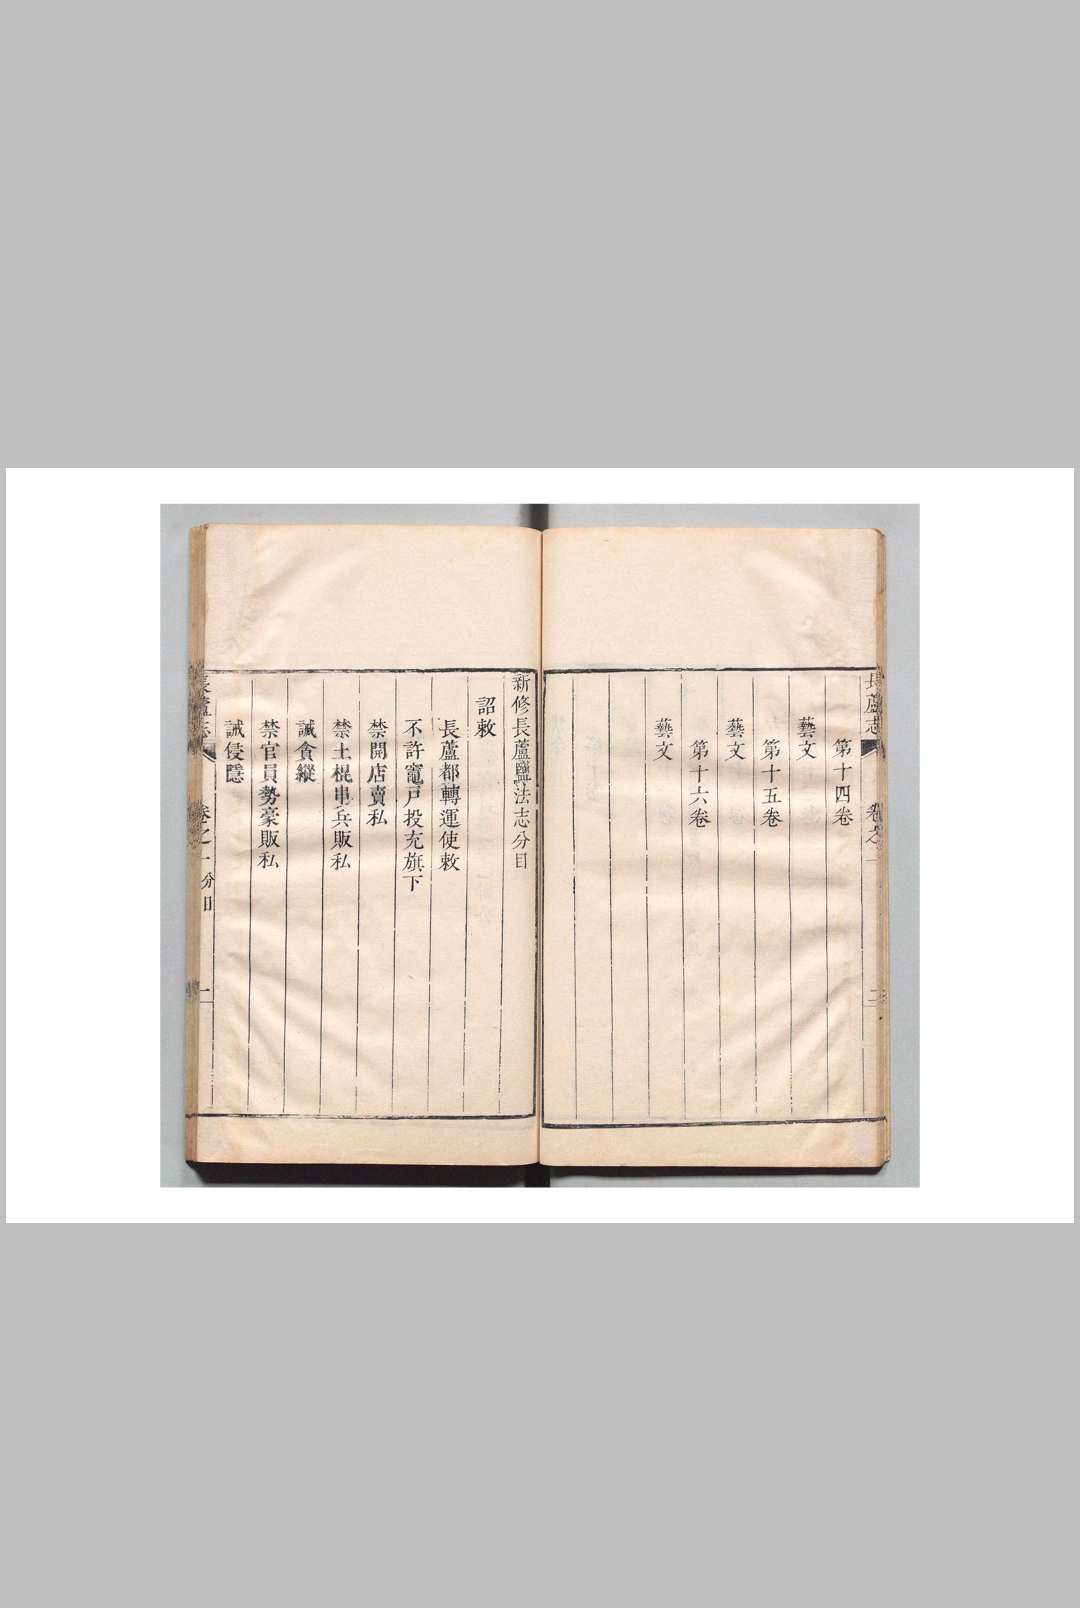 長蘆志 卷之一 二
第十四卷
藝文
第十五卷
藝文
第十六卷
藝文
新修長蘆鹽法志分目
詔敕
長蘆都轉運使敕
不許竈戸投充旗下
禁開店賣私
禁土棍串兵販私
誡貪縱
禁官員勢豪販私
誡侵隱
長蘆志 卷之一 分目 一